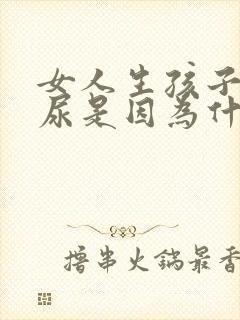 女人生孩子
尿是因為什
撸串火鍋最香